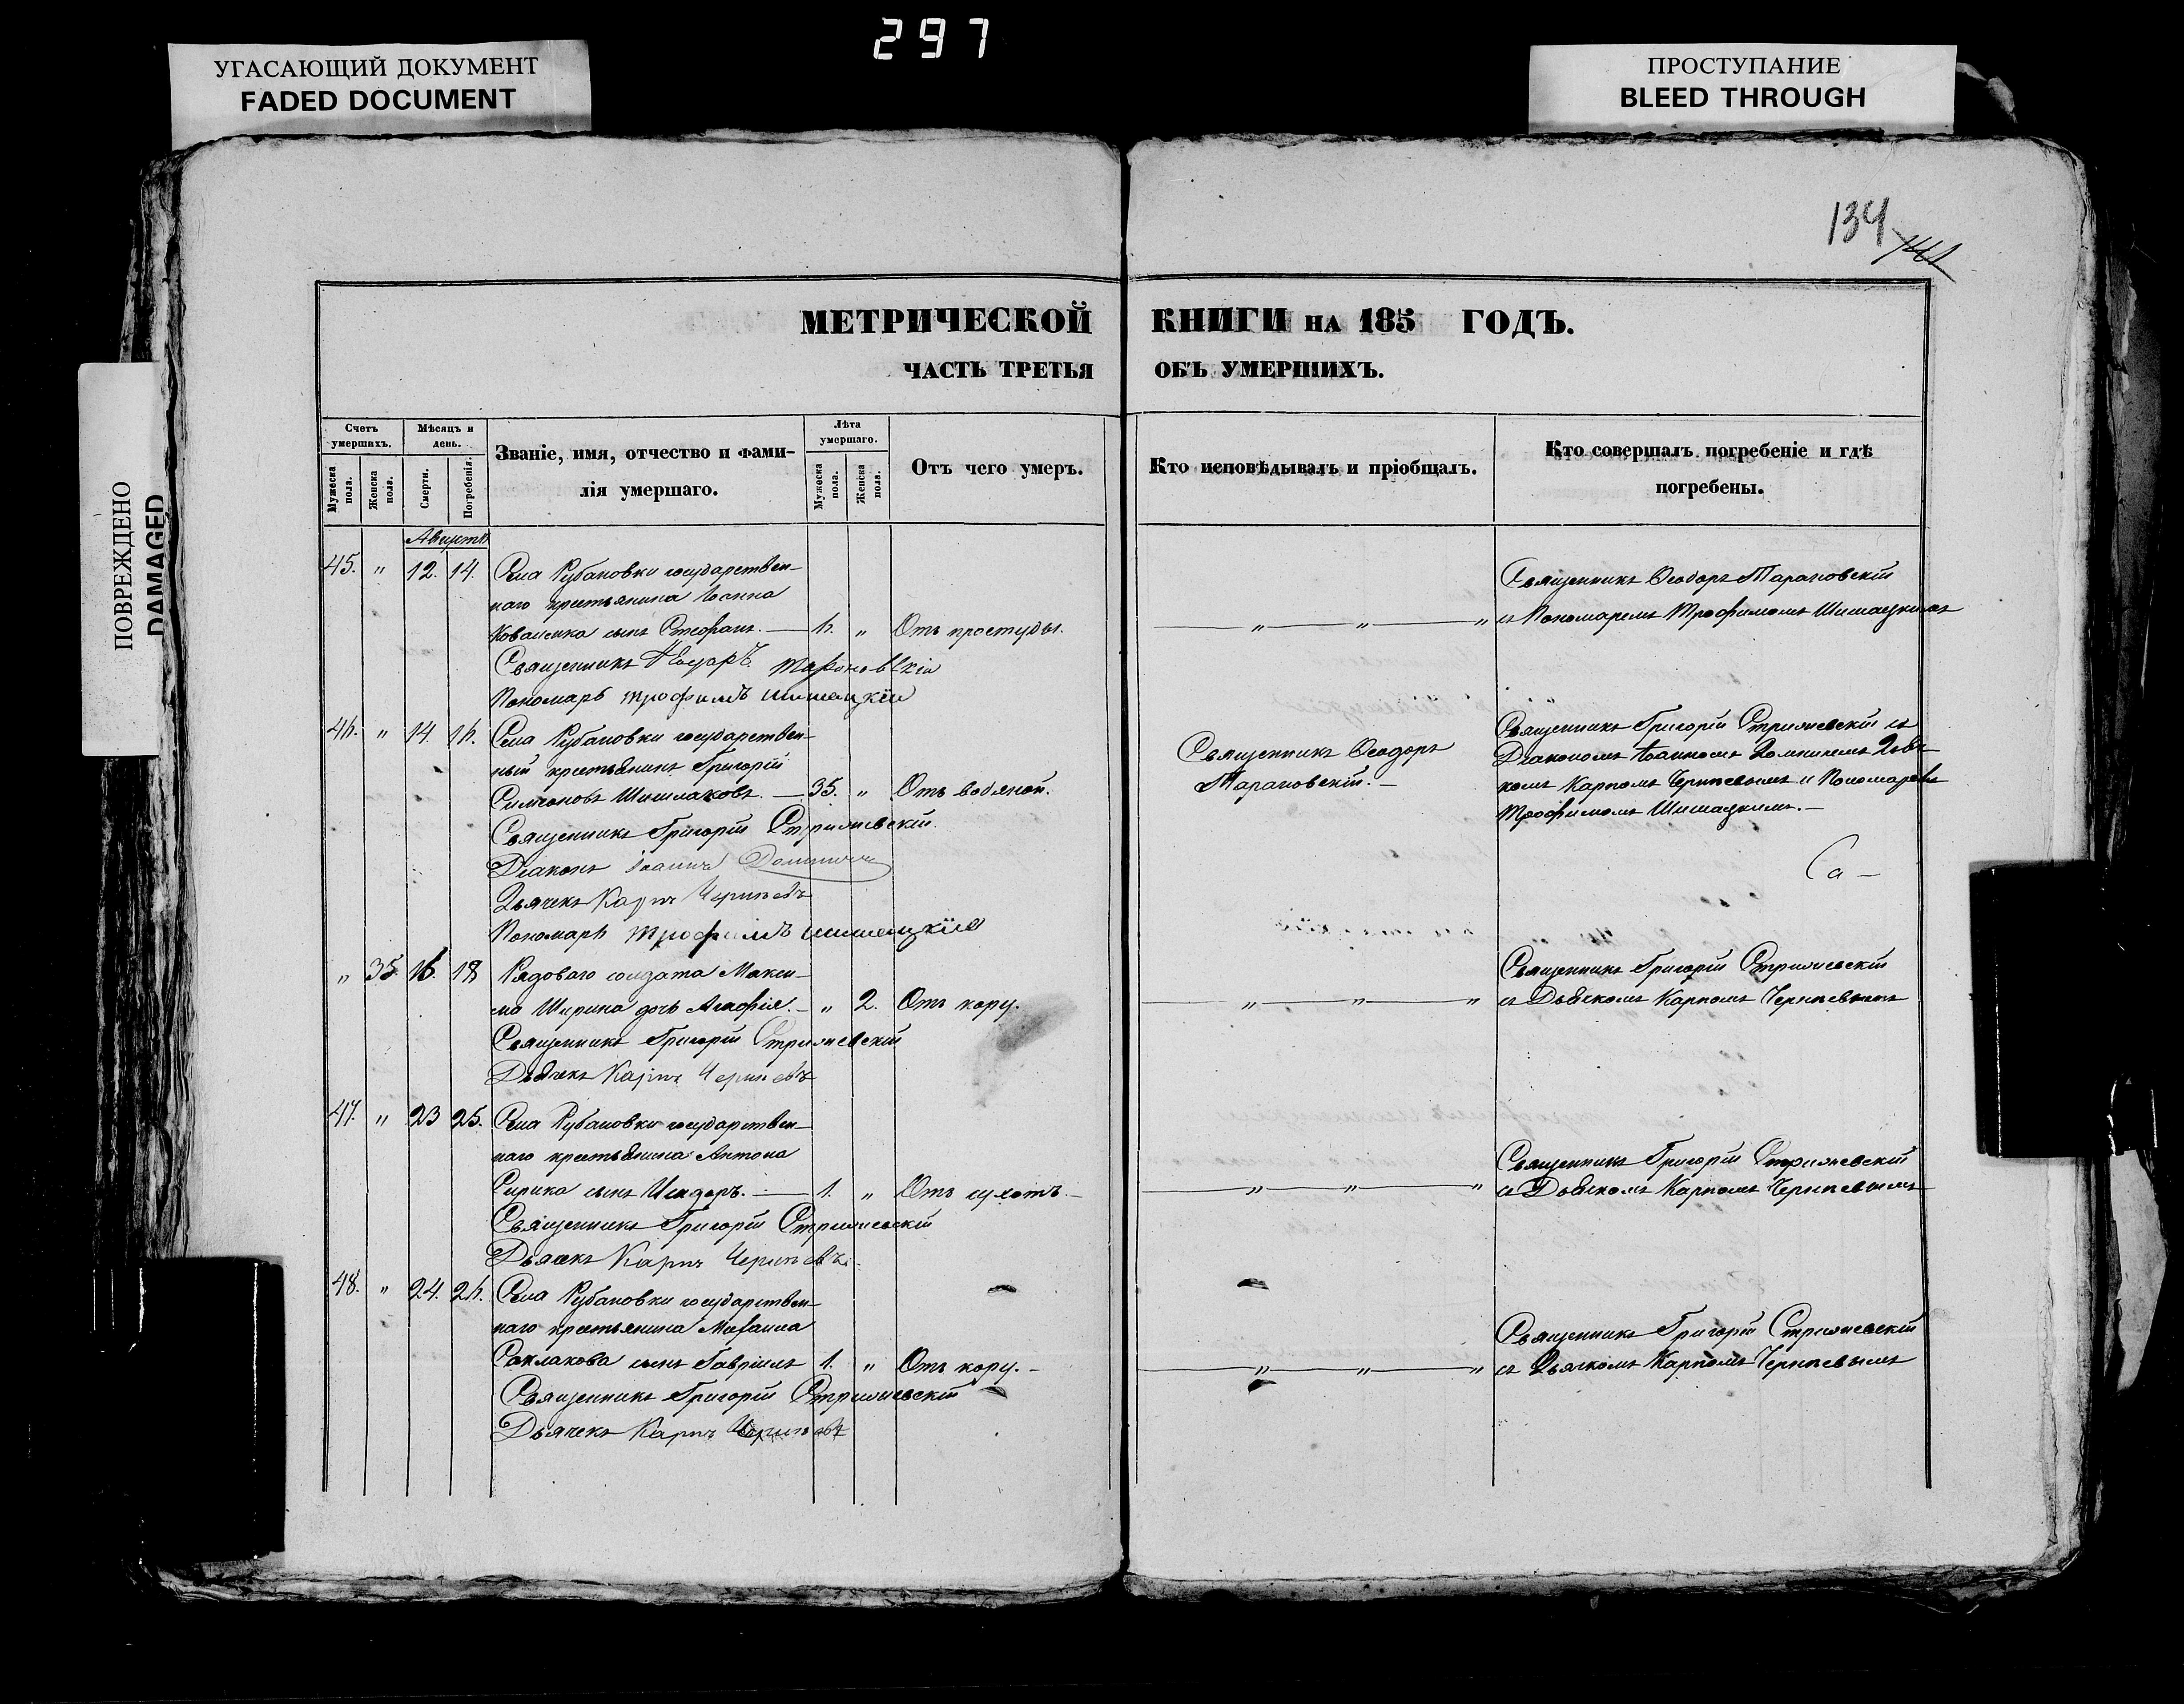 297
УГАСАЮЩИЙ ДОКУМЕНТ
FADED DOCUMENT
ПРОСТУПАНИЕ
BLEED THROUGH
ПОВРЕЖДЕНО
DAMAGED
134
МЕТРИЧЕСКОЙ КНИГИ НА 185 ГОДЪ.
ЧАСТЬ ТРЕТЬЯ ОБЪ УМЕРШИХЪ.
Счетъ умершихъ.
Мужеска пола.
Женска пола.
Мѣсяцъ и день.
Смерти.
Погребенія.
Званіе, имя, отчество и фами-
лія умершаго.
Лѣта умершаго.
Мужеска пола.
Женска пола.
Отъ чего умеръ.
Кто исповѣдывалъ и пріобщалъ.
Кто совершалъ погребеніе и гдѣ
погребены.
Августъ
45. " 12. 14. Села Рубановки государствен-
наго крестьянина Іоанна
Коваленка сынъ Стефанъ. — 6. " Отъ простуды. — " — " — "
Священникъ Ѳеодоръ Тарановскій
съ Пономаремъ Трофимомъ Шишацкимъ
Священникъ Тарановскій
Пономарь Трофимъ Шишацкій
46. " 14. 16. Села Рубановки государствен-
ный крестьянинъ Григорій
Симеоновъ Шишлаковъ. — 35. " Отъ водяной.
Священникъ Ѳеодоръ
Тарановскій. —
Священникъ Григорій Стрижевскій съ
Діакономъ Іоанномъ Дьяч-
комъ Карпомъ Чернневымъ и Пономаремъ
Трофимомъ Шишацкимъ. —
Священникъ Григорій Стрижевскій.
Діаконъ Іоаннъ
Дьячекъ Карпъ
Пономарь Трофимъ Шишацкій
" 35. 16. 18 Рядоваго солдата Макси-
ма Ширина дочь Агафія. — " 2. Отъ кору. — " — " — "
Священникъ Григорій Стрижевскій
съ Дьячкомъ Карпомъ
Священникъ Григорій Стрижевскій
Дьячекъ Карпъ
47. " 23 25. Села Рубановки государствен-
наго крестьянина Антона
Сирика сынъ Исидоръ. — 1. " Отъ сухотъ. — " — " — "
Священникъ Григорій Стрижевскій
съ Дьячкомъ Карпомъ
Священникъ Григорій Стрижевскій
Дьячекъ Карпъ
48. " 24. 26. Села Рубановки государствен-
наго крестьянина Михаила
Саклакова сынъ Гавріилъ 1. " Отъ кору. — " — " — "
Священникъ Григорій Стрижевскій
съ Дьячкомъ Карпомъ
Священникъ Григорій Стрижевскій
Дьячекъ Карпъ